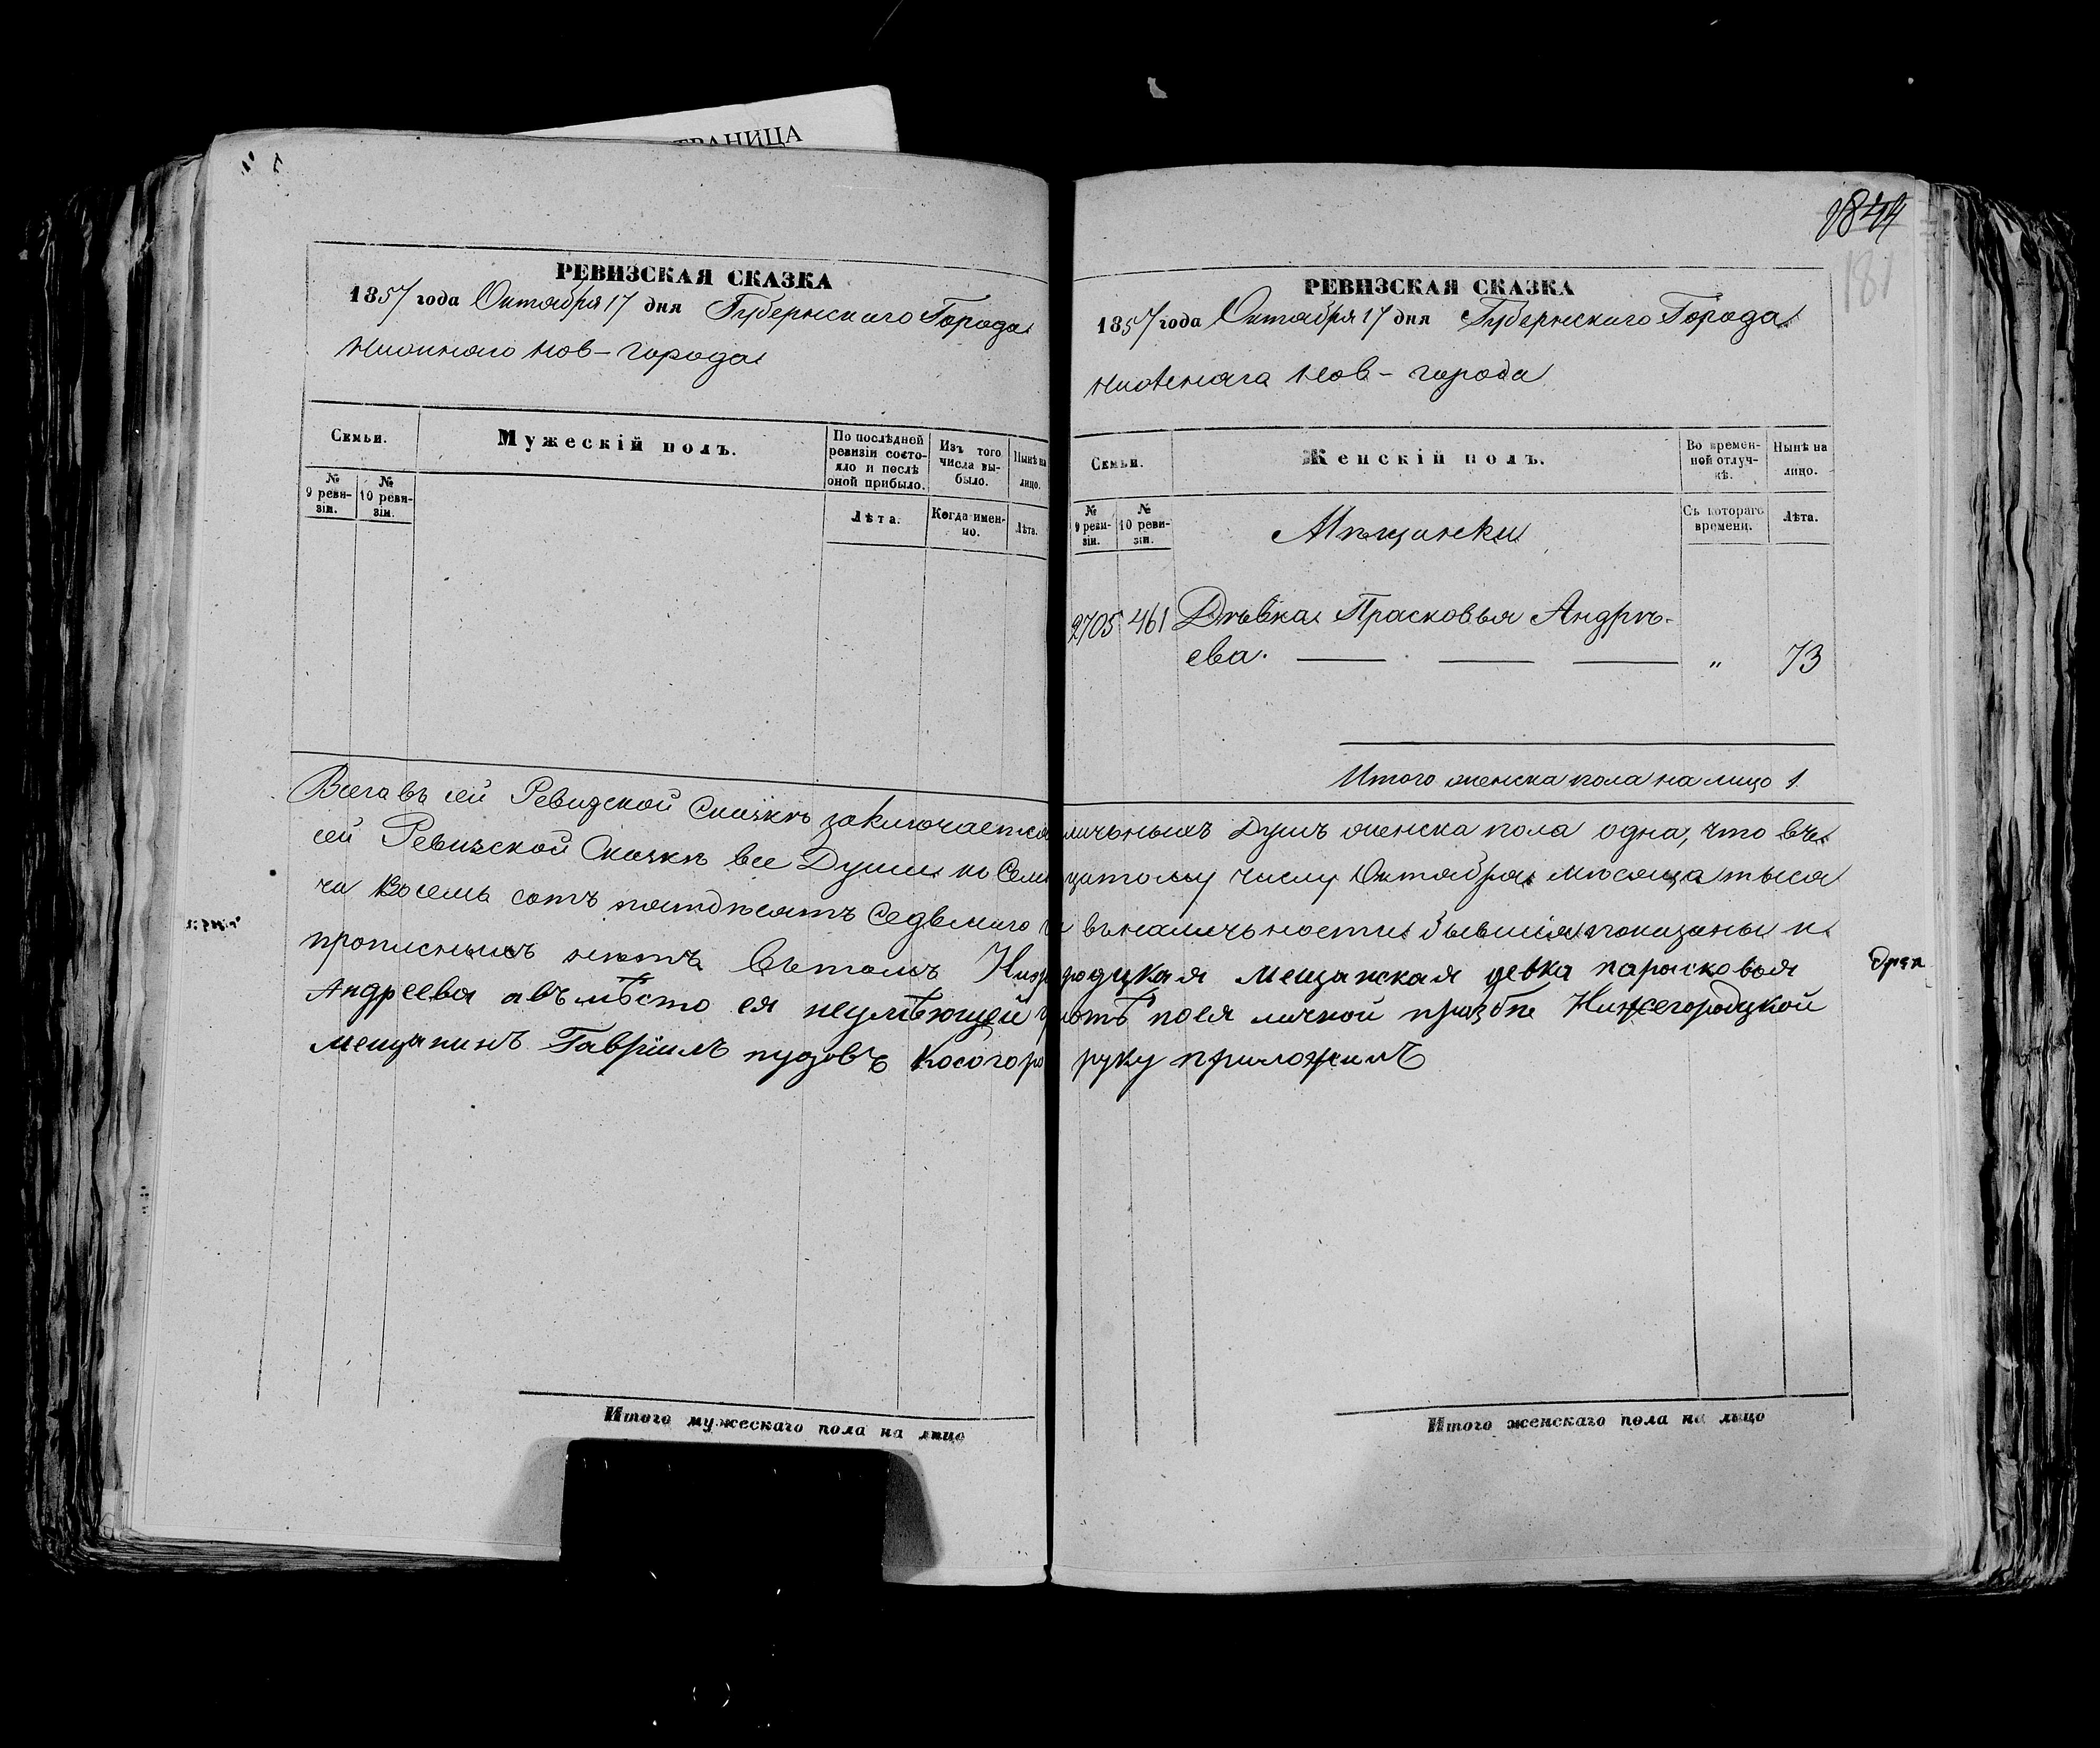 ТРАНИЦА
РЕВИЗСКАЯ СКАЗКА
1857 года Октября 17 дня Губернскаго Города
Нижняго Нов-города
Семьи.
Мужескій полъ.
По послѣдней ревизіи состояло и послѣ оной прибыло.
Изъ того числа выбыло.
Нынѣ на лицо.
№ 9 ревизіи.
№ 10 ревизіи.
Лѣта.
Когда именно.
Лѣта.
1844
181
РЕВИЗСКАЯ СКАЗКА
1857 года Октября 17 дня Губернскаго Города
Нижняга Нов-города
Семьи.
Женскій полъ.
Во временной отлучкѣ.
Нынѣ на лицо.
№ 9 ревизіи.
№ 10 ревизіи.
Съ котораго времени.
Лѣта.
Мѣщанки
2705 461 Дѣвка Прасковья Андрѣ-
ева. " 73
Итого женска пола на лицо 1
Всего въ сей Ревизской Сказкѣ заключается личьныхъ Душъ женска пола одна, что въ
сей Ревизской Сказкѣ все Души по Семн цатому числу Октября мѣсяца тыся
ча восемь сотъ пятдѣсятъ Седьмаго въ наличьности бывшія показаны и
прописныхъ нѣтъ Вътомъ Ниж родцкая мещанская девка парасковья
Андреева авъмѣсто ея неумѣющей грамотѣ поея личной празбе Нижегородцкой
мещанинъ Гавріилъ пудовъ Косогоро руку приложилъ
Итого мужескаго пола на лицо
Итого женскаго пола на лицо